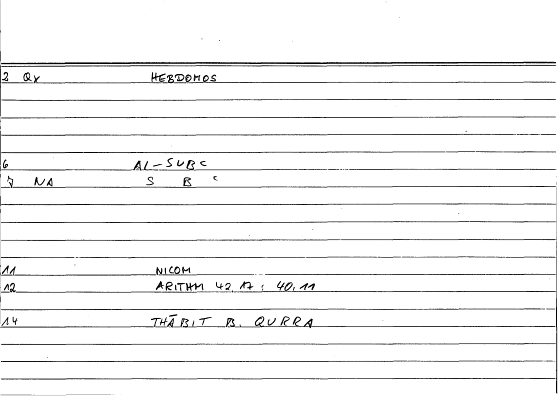 2 Qv HEBDOMOS
6 AL-SUBC
7 NA S B C
11 NICOM
12 ARITHM 42,17 ; 40,11
14 THĀBIT B. QURRA